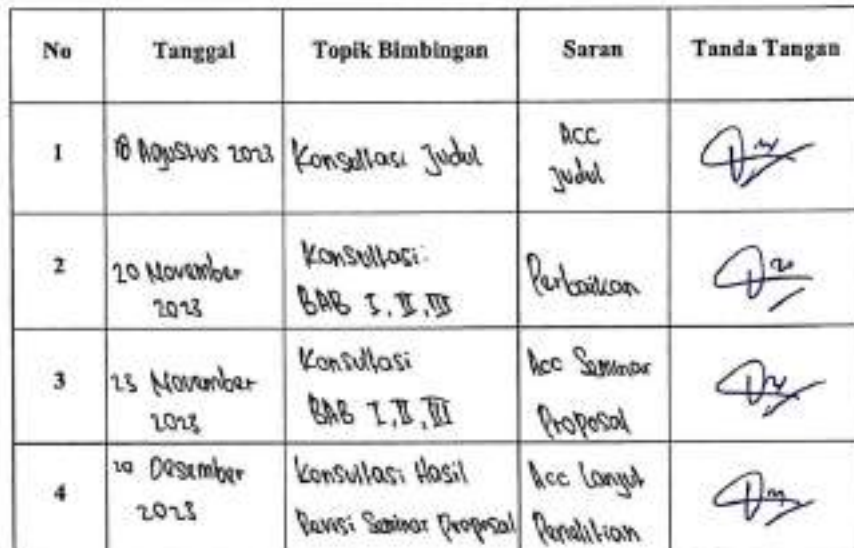 No Tanggal Topik Bimbingan Saran Tanda Tangan
1 18 Agustus 2023 Konsultasi Judul ACC
Judul
2 20 November
2023 Konsultasi:
BAB I, II, III Perbaikan
3 23 November
2023 Konsultasi
BAB I, II, III Acc Seminar
Proposal
4 20 Desember
2023 Konsultasi Hasil
Revisi Seminar Proposal Acc Lanjut
Penelitian